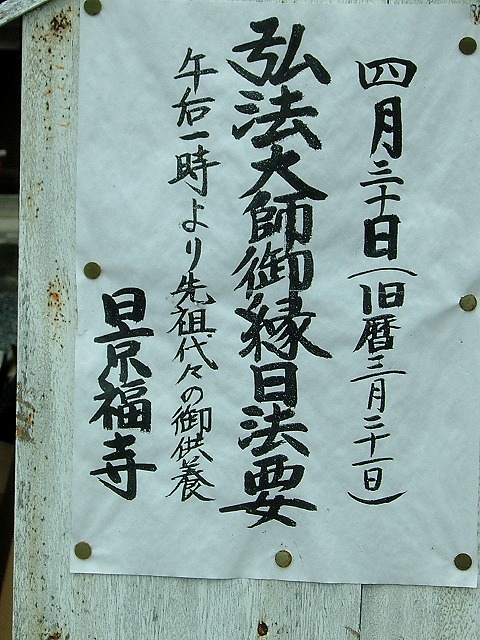 四月三十日（旧暦三月二十一日）
弘法大師御縁日法要
午后一時より先祖代々の御供養
景福寺